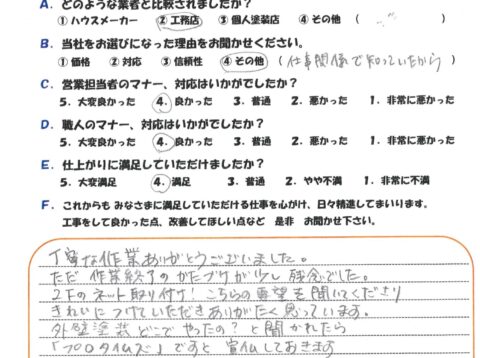 A. どのような業者と比較されましたか?
① ハウスメーカー ② 工務店 ③ 個人塗装店 ④ その他 ( )
B. 当社をお選びになった理由をお聞かせください。
① 価格 ② 対応 ③ 信頼性 ④ その他 (仕事関係で知っていたから)
C. 営業担当者のマナー、対応はいかがでしたか?
5. 大変良かった 4. 良かった 3. 普通 2. 悪かった 1. 非常に悪かった
D. 職人のマナー、対応はいかがでしたか?
5. 大変良かった 4. 良かった 3. 普通 2. 悪かった 1. 非常に悪かった
E. 仕上がりに満足していただけましたか?
5. 大変満足 4. 満足 3. 普通 2. やや不満 1. 非常に不満
F. これからも みなさまに満足していただける仕事を心がけ、日々精進してまいります。
工事をして良かった点、改善してほしい点など 是非 お聞かせ下さい。
丁寧な作業ありがとうございました。
ただ 作業終了のかたづけが少し残念でした。
2Fのネット取り付け! こちらの要望を聞いてくださり
きれいにつけていただきありがたく思っています。
外壁塗装どこでやったの? と聞かれたら
「プロタイムズ」ですと宣伝しておきます